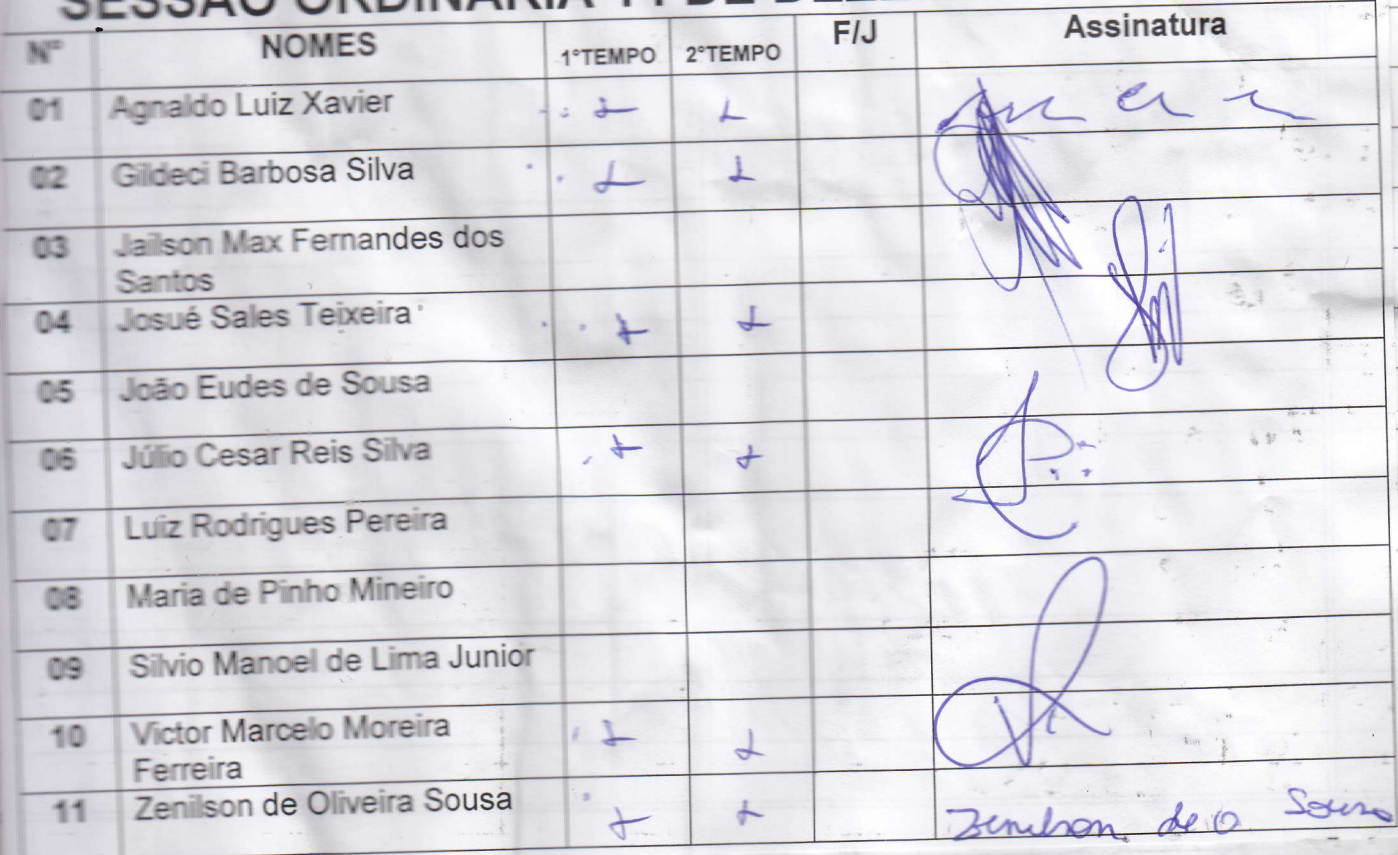 SESSÃO ORDINÁRIA 11 DE
Nº NOMES 1°TEMPO 2°TEMPO F/J Assinatura
01 Agnaldo Luiz Xavier + +
02 Gildeci Barbosa Silva + +
03 Jailson Max Fernandes dos
Santos
04 Josué Sales Teixeira + +
05 João Eudes de Sousa
06 Júlio Cesar Reis Silva + +
07 Luiz Rodrigues Pereira
08 Maria de Pinho Mineiro
09 Silvio Manoel de Lima Junior
10 Victor Marcelo Moreira + +
Ferreira
11 Zenilson de Oliveira Sousa + + Zenilson de O Sousa